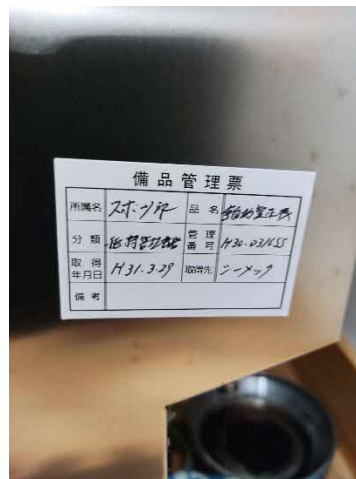 備品管理票
所属名 スポーツ課 品名
分類 管理番号 H30-031655
取得年月日 H31.3.29 取得先 シーメック
備考